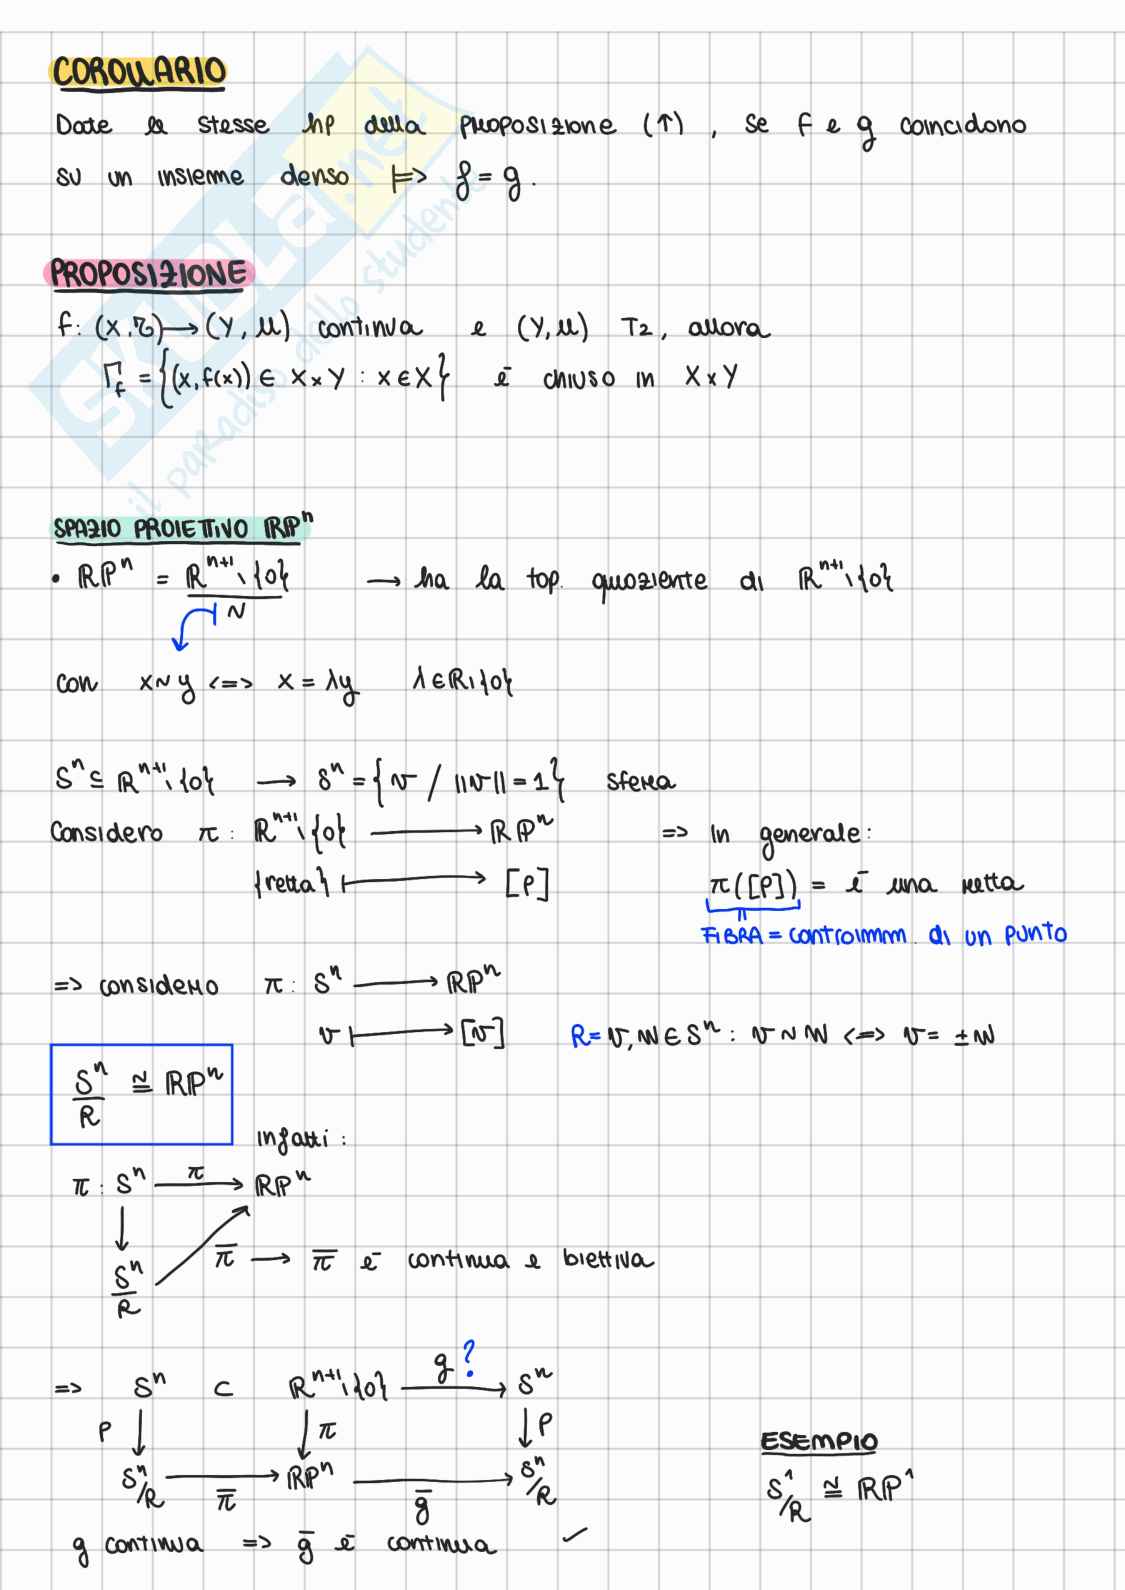 COROLLARIO
Date le stesse hp della proposizione (↑) , se f e g coincidono
su un insieme denso |=> f = g .
PROPOSIZIONE
f: (X,τ) → (Y,μ) continua e (Y,μ) T2, allora
Γf = {(x, f(x)) ∈ X×Y : x ∈ X} è chiuso in X×Y
SPAZIO PROIETTIVO RPⁿ
• RPⁿ = Rⁿ⁺¹\{0} → ha la top. quoziente di Rⁿ⁺¹\{0}
~
con x~y <=> x = λy λ∈R\{0}
Sⁿ ⊆ Rⁿ⁺¹\{0} → Sⁿ = {v / ||v|| = 1} sfera
Considero π : Rⁿ⁺¹\{0} → RPⁿ => In generale:
{retta} ↦ [P] π([P]) = è una retta
FIBRA = controimm. di un punto
=> considero π : Sⁿ → RPⁿ
v ↦ [v] R= v,w ∈ Sⁿ : v ~ w <=> v = ±w
Sⁿ/R ≅ RPⁿ
infatti :
π : Sⁿ π → RPⁿ
π̅ → π̅ è continua e biettiva
Sⁿ/R
=> Sⁿ ⊂ Rⁿ⁺¹\{0} g? → Sⁿ
P ↓ ↓ π ↓ P
ESEMPIO
Sⁿ/R → π̅ RPⁿ → g̅ Sⁿ/R
S¹/R ≅ RP¹
g continua => g̅ è continua ✓
SKUOLA.net
il paradiso dello studente